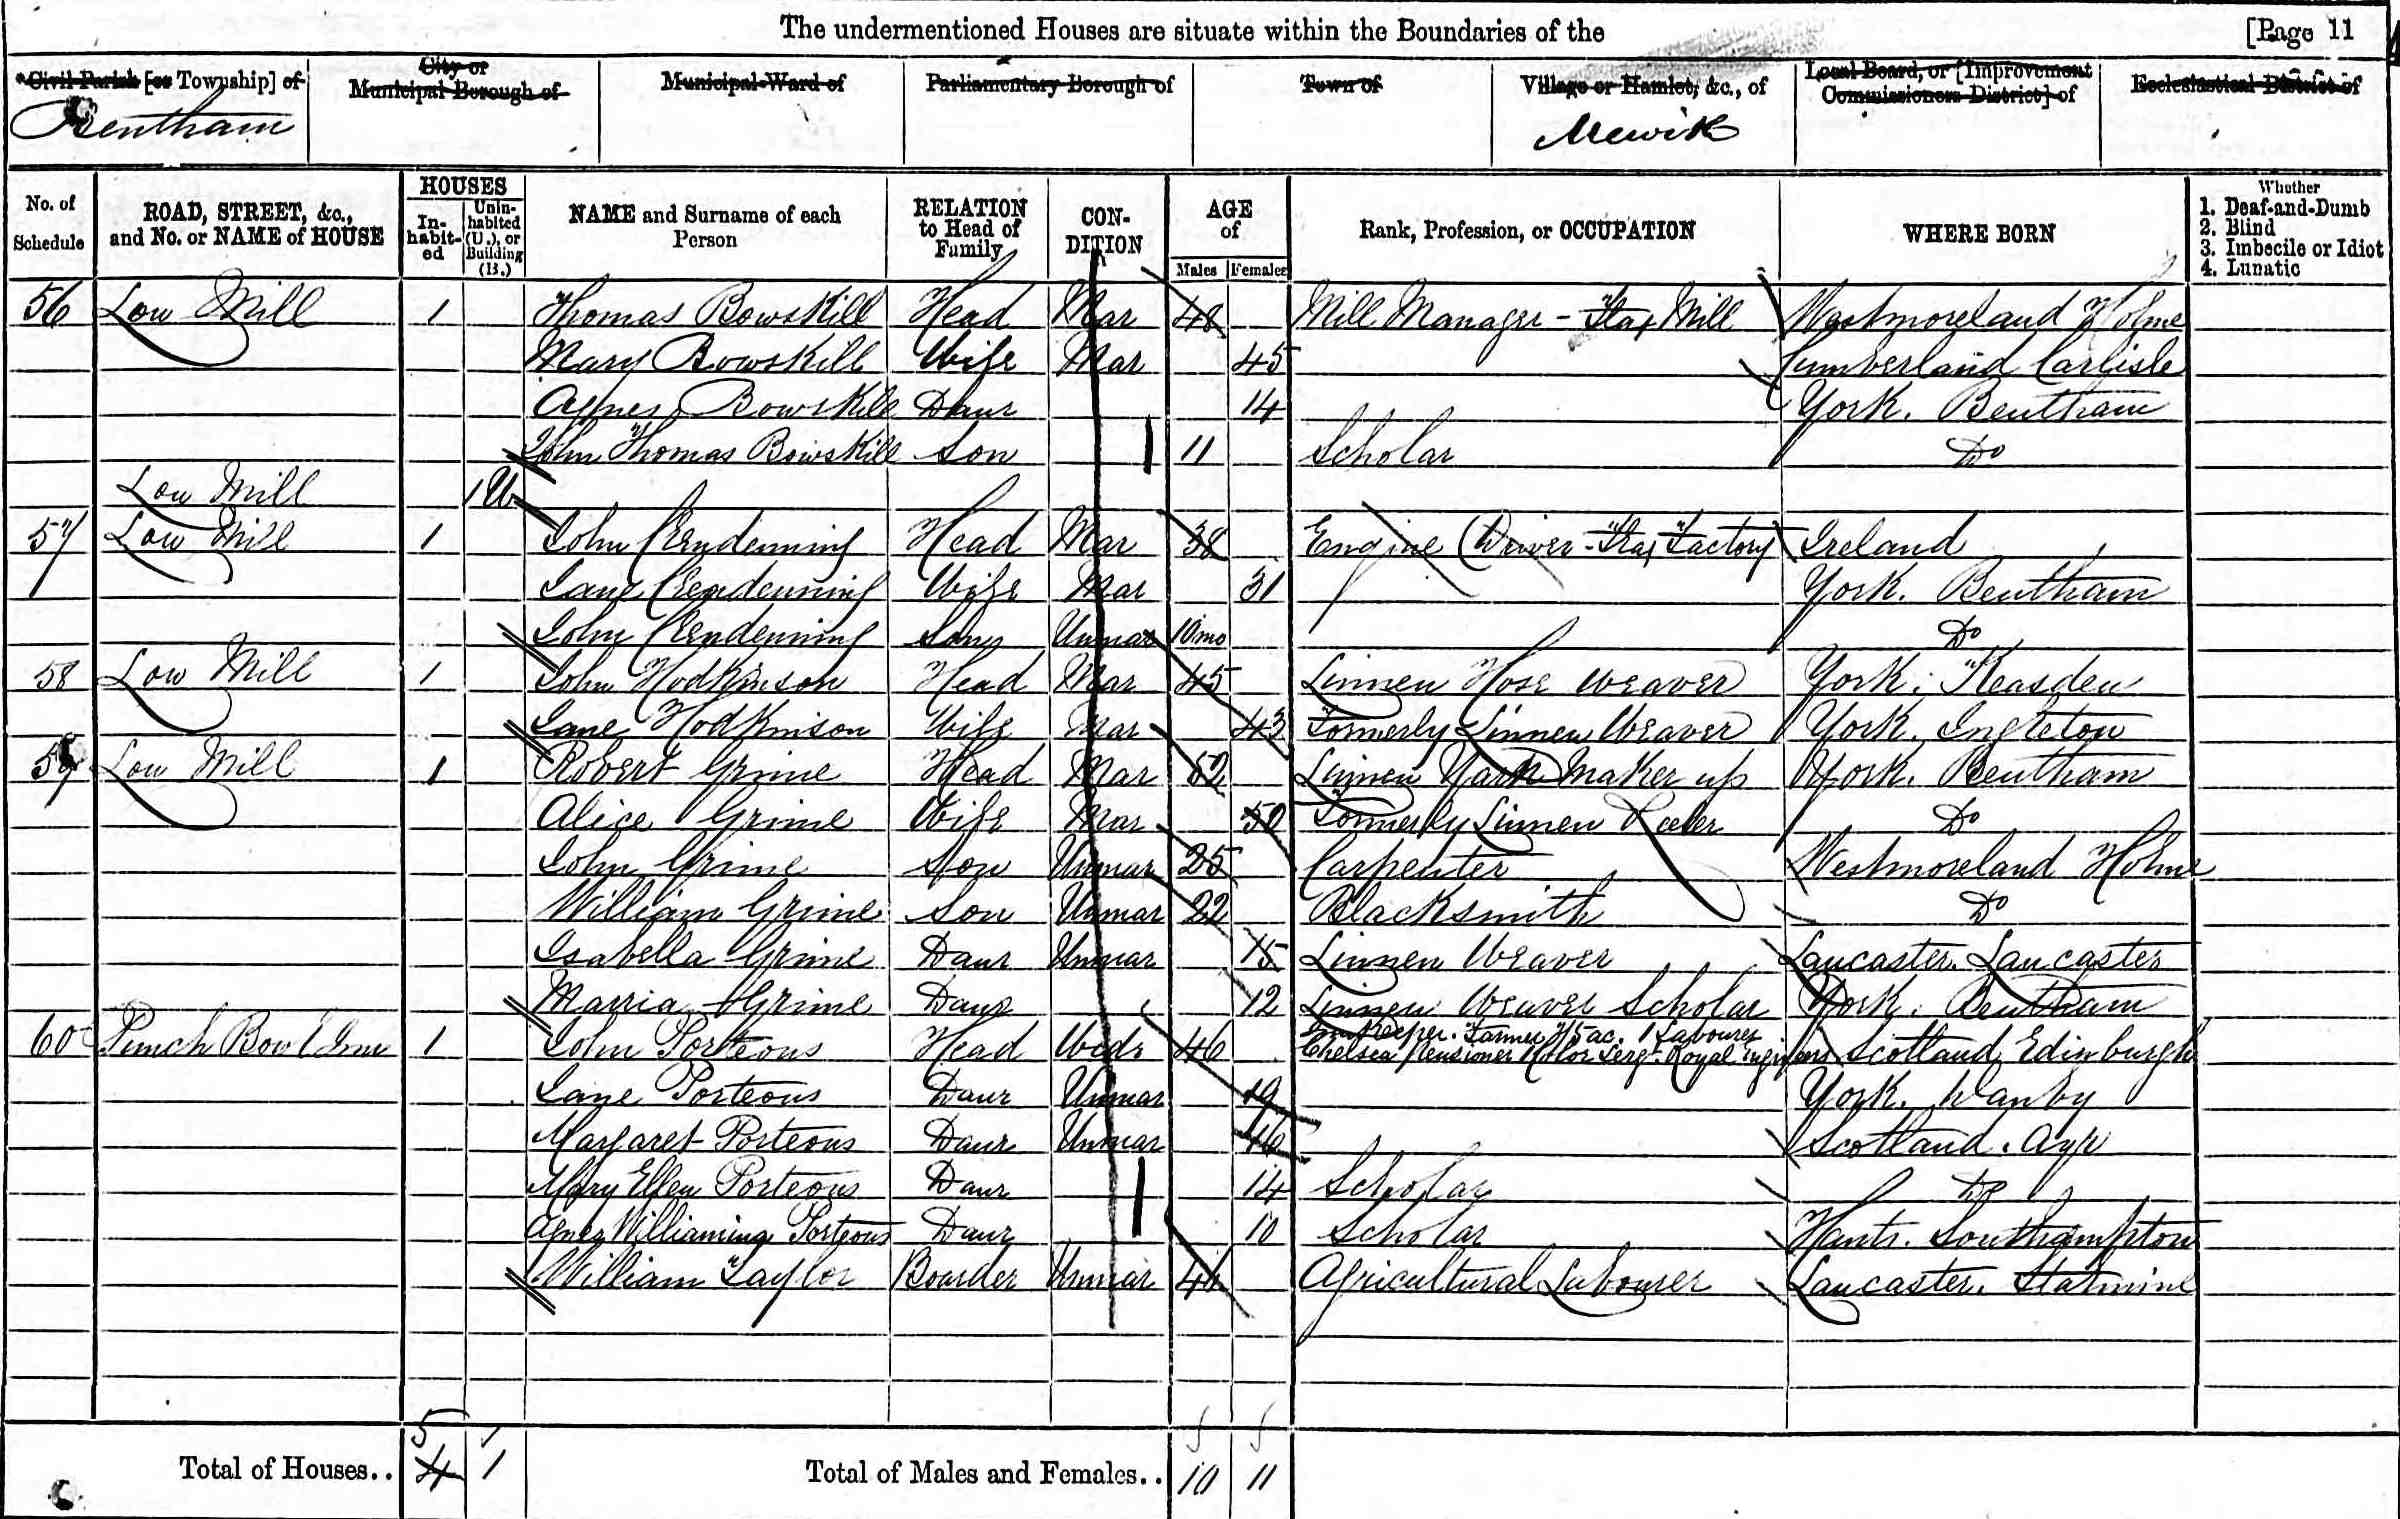 The undermentioned Houses are situate within the Boundaries of the [Page 11
Civil Parish [or Township] of
City or Municipal Borough of
Municipal Ward of
Parliamentary Borough of
Town of
Village or Hamlet, &c., of
Local Board, or [Improvement Commissioners District] of
Ecclesiastical District of
Bentham Mewik
No. of Schedule
ROAD, STREET, &c., and No. or NAME of HOUSE
HOUSES
Inhabited
Uninhabited (U.), or Building (B.)
NAME and Surname of each Person
RELATION to Head of Family
CONDITION
AGE of
Males Females
Rank, Profession, or OCCUPATION
WHERE BORN
Whether
1. Deaf-and-Dumb
2. Blind
3. Imbecile or Idiot
4. Lunatic
56 Low Mill 1 Thomas Bowskill Head Mar 48 Mill Manager - Flax Mill Westmoreland Holme
Mary Bowskill Wife Mar 45 Cumberland Carlisle
Agnes Bowskill Daur 14 York. Bentham
John Thomas Bowskill Son 11 Scholar Do
Low Mill 1U
57 Low Mill 1 John Clendenning Head Mar 38 Engine Driver - Flax Factory Ireland
Jane Clendenning Wife Mar 31 York. Bentham
John Clendenning Son Unmar 10mo Do
58 Low Mill 1 John Hodkinson Head Mar 45 Linnen Hose Weaver York. Keasden
Jane Hodkinson Wife Mar 43 Formerly Linnen Weaver York. Ingleton
59 Low Mill 1 Robert Grime Head Mar 52 Linnen Yarn Maker up York. Bentham
Alice Grime Wife Mar 50 Formerly Linnen Reeler Do
John Grime Son Unmar 25 Carpenter Westmoreland Holme
William Grime Son Unmar 22 Blacksmith Do
Isabella Grime Daur Unmar 15 Linnen Weaver Lancaster. Lancaster
Marria Grime Daur 12 Linnen Weaver Scholar York. Bentham
60 Punch Bowl Inn 1 John Porteous Head Widr 46 Inn Keeper. Farmer 75 ac. 1 Labourer
Chelsea Pensioner Color Sergt. Royal Engineers Scotland Edinburgh
Jane Porteous Daur Unmar 19 York. Danby
Margaret Porteous Daur Unmar 16 Scotland. Ayr
Mary Ellen Porteous Daur 14 Scholar Do
Agnes Williamina Porteous Daur 10 Scholar Hants. Southampton
William Taylor Boarder Unmar 46 Agricultural Labourer Lancaster. Stalmine
5
Total of Houses.. 4 1 Total of Males and Females.. 10 11